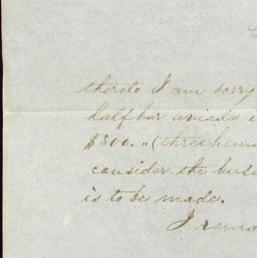 thereto I am sorry
half bar
$300.,, (threehun
consider the
is to be made.
I rema